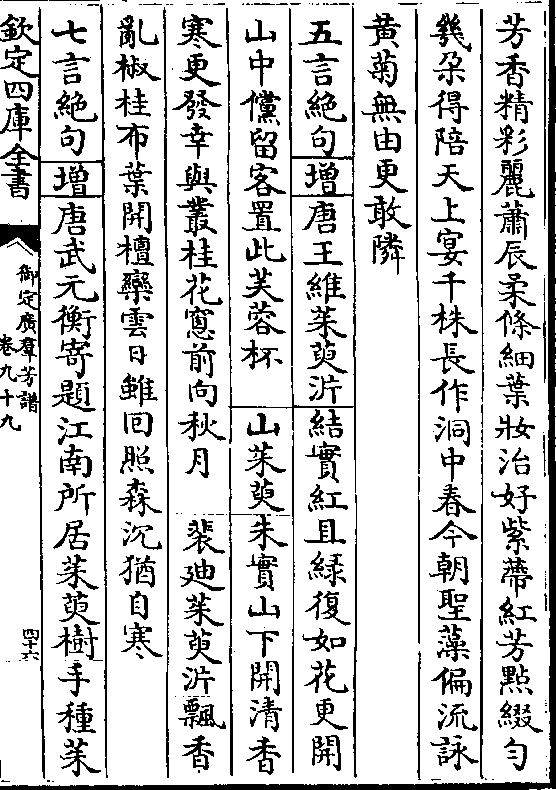 芳香精彩麗蕭辰柔條細葉妝治好紫蔕紅芳點綴勻
幾朶得陪天上宴千株長作洞中春今朝聖藻偏流詠
黄菊無由更敢隣
五言絶句增唐王維茱萸沜結實紅且緑復如花更開
山中儻留客置此芙蓉杯 山茱萸朱實山下開清香
寒更發幸與叢桂花窻前向秋月 裴廸茱萸沜飄香
亂椒桂布葉間檀欒雲日雖回照森沉猶自寒
七言絶句增唐武元衡寄題江南所居茱萸樹手種茱
欽定四庫全書
御定廣羣芳譜
卷九十九
四十六